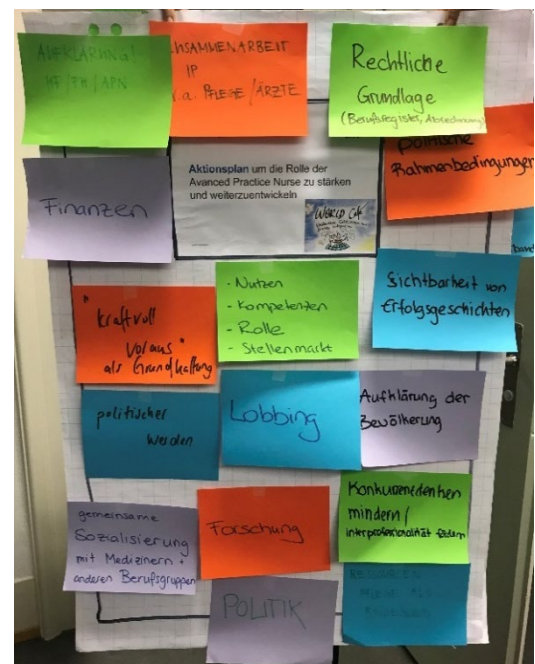 AUFKLÄRUNG!
HF/FH/APN
ZUSAMMENARBEIT
IP
v.a. PFLEGE/ÄRZTE
Rechtliche
Grundlage
(Berufsregister, Abrechnung)
politische
Rahmenbedingungen
Finanzen
Aktionsplan um die Rolle der
Avanced Practice Nurse zu stärken
und weiterzuentwickeln
WORLD Café
"kraftvoll
voraus"
als Grundhaltung
- Nutzen
- Kompetenzen
- Rolle
- Stellenmarkt
Sichtbarkeit von
Erfolgsgeschichten
politischer
werden
Lobbing
Aufklärung der
Bevölkerung
gemeinsame
Sozialisierung
mit Medizinern +
anderen Berufsgruppen
Forschung
Konkurrenzdenken
mindern/
interprofessionalität
POLITIK